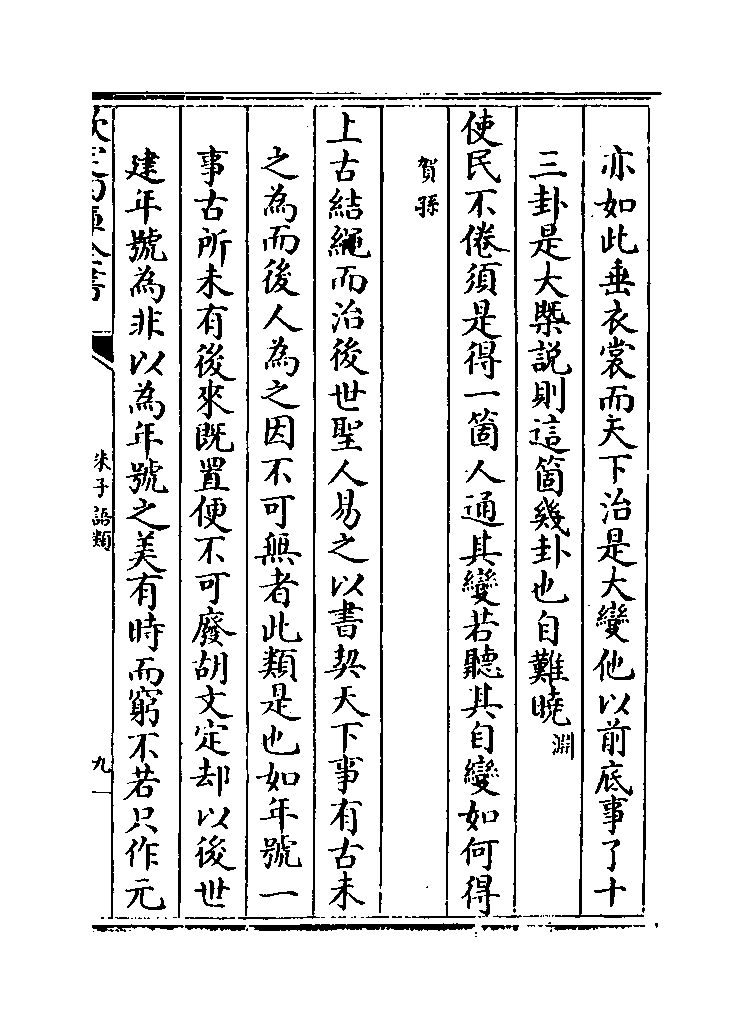 亦如此垂衣裳而天下治是大變他以前底事了十
三卦是大槩説則這箇幾卦也自難曉淵
使民不倦須是得一箇人通其變若聽其自變如何得
賀孫
上古結繩而治後世聖人易之以書契天下事有古未
之為而後人為之因不可無者此類是也如年號一
事古所未有後來既置便不可廢胡文定却以後世
建年號為非以為年號之美有時而窮不若只作元
欽定四庫全書
朱子語類
九一